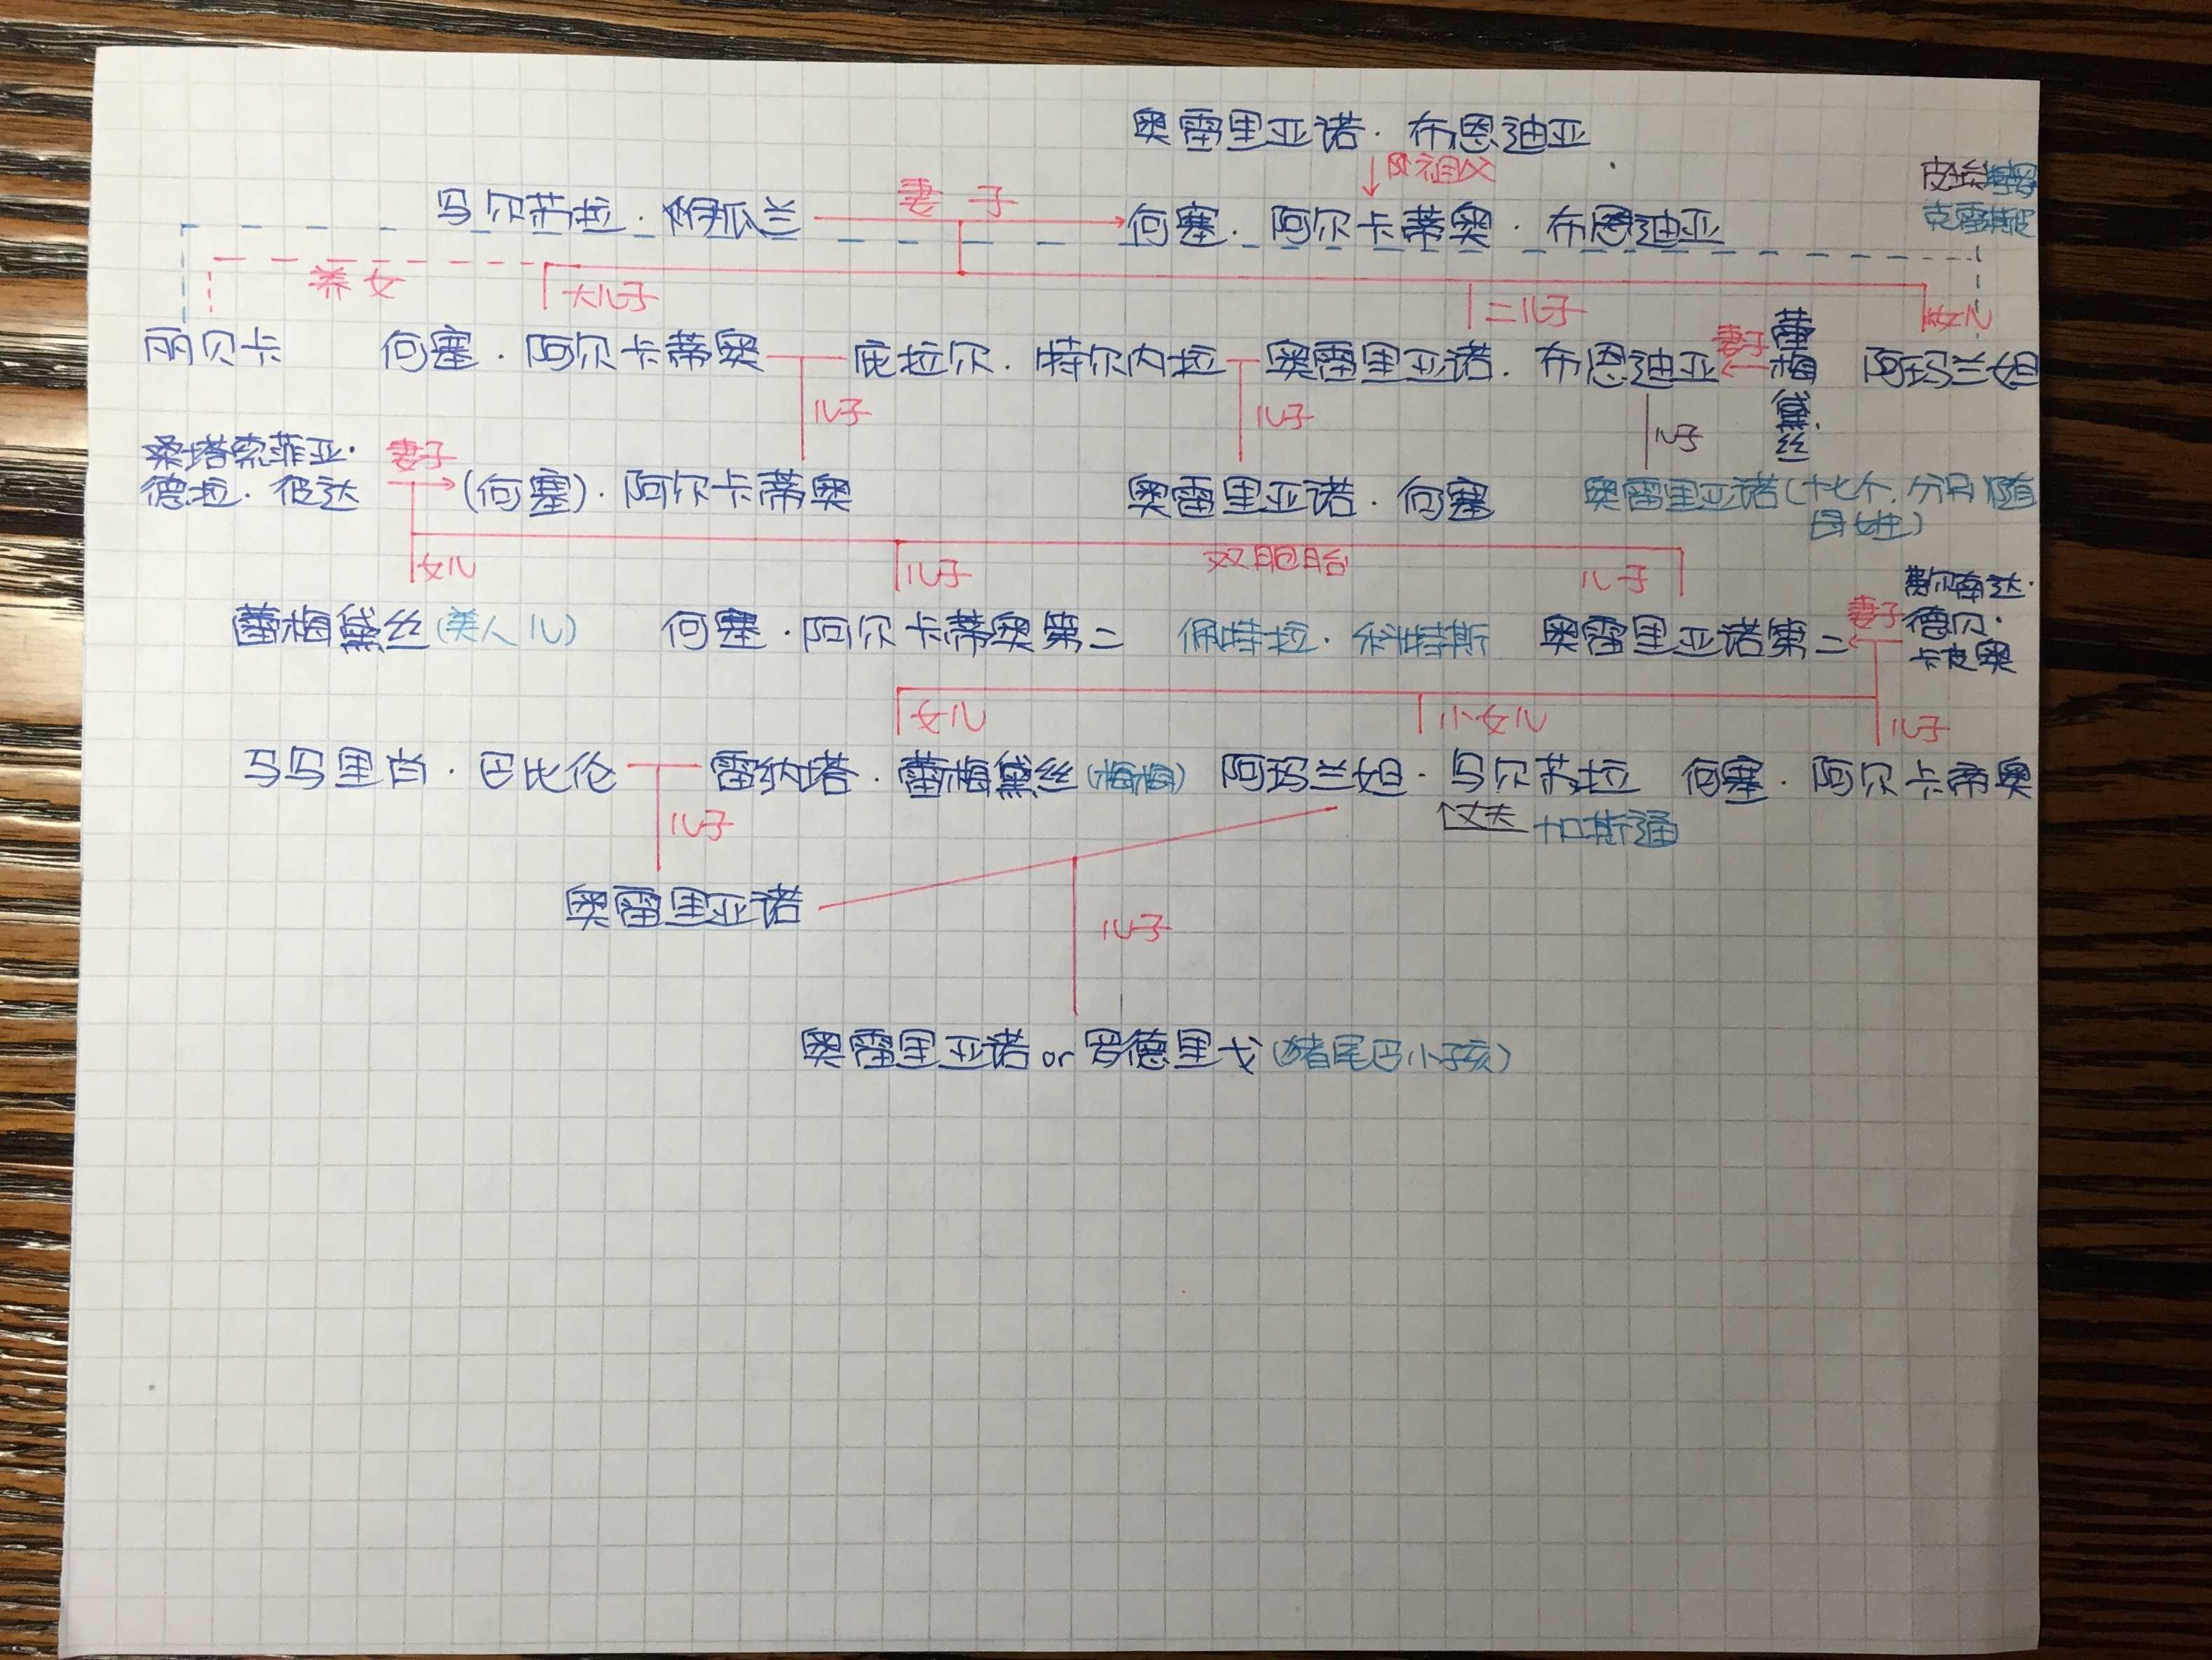 奥雷里亚诺·布恩迪亚
↓ 曾祖父
皮埃特罗
克雷斯皮
乌尔苏拉·伊瓜兰 妻子 何塞·阿尔卡蒂奥·布恩迪亚
养女 大儿子 二儿子 女儿
丽贝卡 何塞·阿尔卡蒂奥 庇拉尔·特尔内拉 奥雷里亚诺·布恩迪亚 妻子 蕾梅黛丝 阿玛兰妲
儿子 儿子 儿子
桑塔索菲亚·
德拉·彼达 妻子 (何塞)·阿尔卡蒂奥 奥雷里亚诺·何塞 奥雷里亚诺(十七个,分别随
母姓)
女儿 儿子 双胞胎 儿子
蕾梅黛丝(美人儿) 何塞·阿尔卡蒂奥第二 佩特拉·科特斯 奥雷里亚诺第二 妻子 费尔南达·
德尔·
卡皮奥
女儿 小女儿 儿子
马乌里肖·巴比伦 雷纳塔·蕾梅黛丝(梅梅) 阿玛兰妲·乌尔苏拉 何塞·阿尔卡蒂奥
儿子 丈夫 加斯通
奥雷里亚诺
儿子
奥雷里亚诺or罗德里戈(猪尾巴小孩)